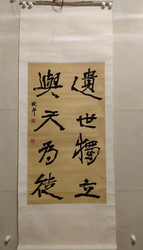 遺世獨立
與天為徒